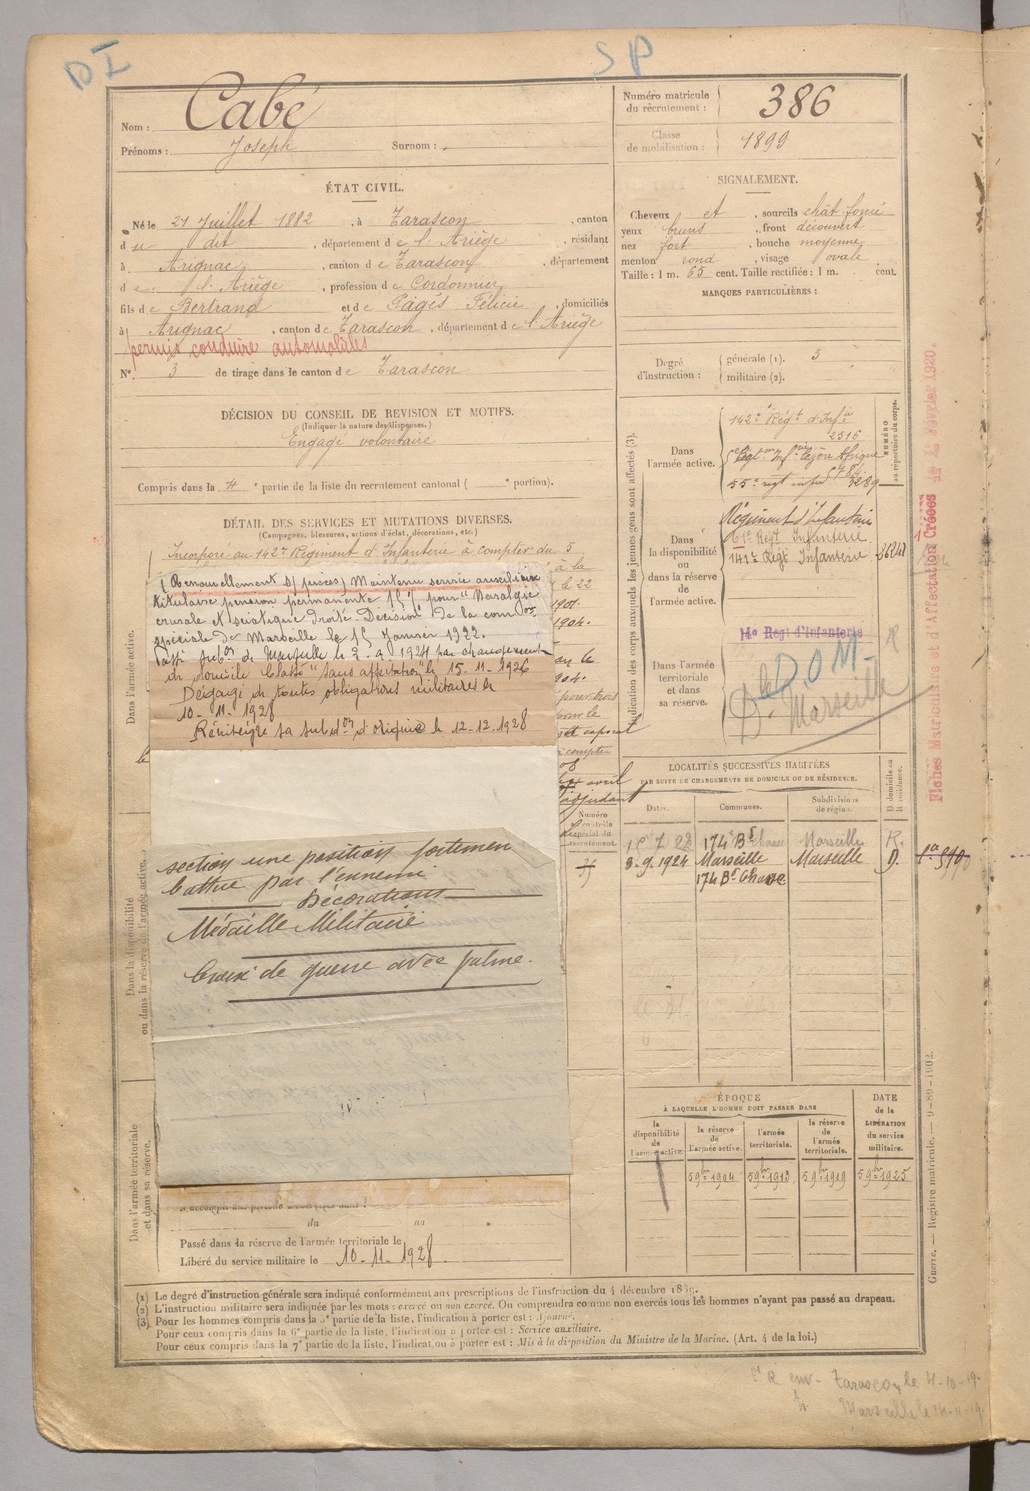 DI
SP
Nom : Cabé
Prénoms : Joseph Surnom : .
Numéro matricule du recrutement : 386
Classe de mobilisation : 1899
ÉTAT CIVIL.
Né le 21 Juillet 1882, à Tarascon, canton
du dit, département de l'Ariège, résidant
à Arignac, canton de Tarascon, département
de l'Ariège, profession de Cordonnier
fils de Bertrand et de Pagès Félicie, domiciliés
à Arignac, canton de Tarascon, département de l'Ariège
permis conduire automobiles
N° 3 de tirage dans le canton de Tarascon
SIGNALEMENT.
Cheveux et, sourcils chât. foncé
yeux bruns, front découvert
nez fort, bouche moyenne
menton rond, visage ovale
Taille : 1 m. 65 cent. Taille rectifiée : 1 m. cent.
MARQUES PARTICULIÈRES :
Degré d'instruction : générale (1). 3
militaire (2).
DÉCISION DU CONSEIL DE REVISION ET MOTIFS.
(Indiquer la nature des dispenses.)
Engagé volontaire
Compris dans la 4e partie de la liste du recrutement cantonal ( e portion).
DÉTAIL DES SERVICES ET MUTATIONS DIVERSES.
(Campagnes, blessures, actions d'éclat, décorations, etc.)
Incorporé au 142e Régiment d'Infanterie à compter du 5
(Renouvellement s/ pièces) Maintenu service auxiliaire
titulaire pension permanente 15 % pour "Névralgie
crurale et sciatique droite. Décision de la comon
spéciale de Marseille le 15 Janvier 1922.
Passé subon de Marseille le 3.9.1924 par changement
de domicile Classé "sans affectation" le 15.11.1926
Dégagé de toutes obligations militaires le
10-11-1928
Réintègre sa subdon d'origine le 12-12-1928
section une position fortemen
battue par l'ennemi
Décorations
Médaille Militaire
Croix de guerre avec palme.
Dans l'armée active.
Dans la disponibilité
ou dans la réserve de l'armée active.
Dans l'armée territoriale
et dans sa réserve.
Indication des corps auxquels les jeunes gens sont affectés (3).
NUMÉRO
au répertoire du corps.
Dans l'armée active.
142e Régt d'Infie
2516
55e regt inf
3289
Dans la disponibilité ou dans la réserve de l'armée active.
Régiment d'Infanterie
61e Regt Infanterie
141e Régt Infanterie
Dans l'armée territoriale et dans sa réserve.
14e Regt d'Infanterie
DOM
Marseille
LOCALITÉS SUCCESSIVES HABITÉES
PAR SUITE DE CHANGEMENTS DE DOMICILE OU DE RÉSIDENCE.
Dates. Communes. Subdivisions de région. D domicile ou R résidence.
174 Bd Chave Marseille R.
3.9.1924 Marseille Marseille D.
174 Bd Chave
Numéro
du contrôle
spécial du
recrutement.
ÉPOQUE
À LAQUELLE L'HOMME DOIT PASSER DANS
la disponibilité de l'armée active. la réserve de l'armée active. l'armée territoriale. la réserve de l'armée territoriale.
DATE de la LIBÉRATION du service militaire.
5 9bre 1904 5 9bre 1913 5 9bre 1919 5 9bre 1925
du au
Passé dans la réserve de l'armée territoriale le
Libéré du service militaire le 10-11-1928
(1) Le degré d'instruction générale sera indiqué conformément aux prescriptions de l'instruction du 4 décembre 1889.
(2) L'instruction militaire sera indiquée par les mots : exercé ou non exercé. On comprendra comme non exercés tous les hommes n'ayant pas passé au drapeau.
(3) Pour les hommes compris dans la 5e partie de la liste, l'indication à porter est : Ajourné.
Pour ceux compris dans la 6e partie de la liste, l'indication à porter est : Service auxiliaire.
Pour ceux compris dans la 7e partie de la liste, l'indication à porter est : Mis à la disposition du Ministre de la Marine. (Art. 4 de la loi.)
Fiches Matriculaire et d'Affectation Créées le 1er Février 1920.
Guerre. — Registre matricule. — 9-89-1902.
Tarascon le 4-10-19
Marseille le